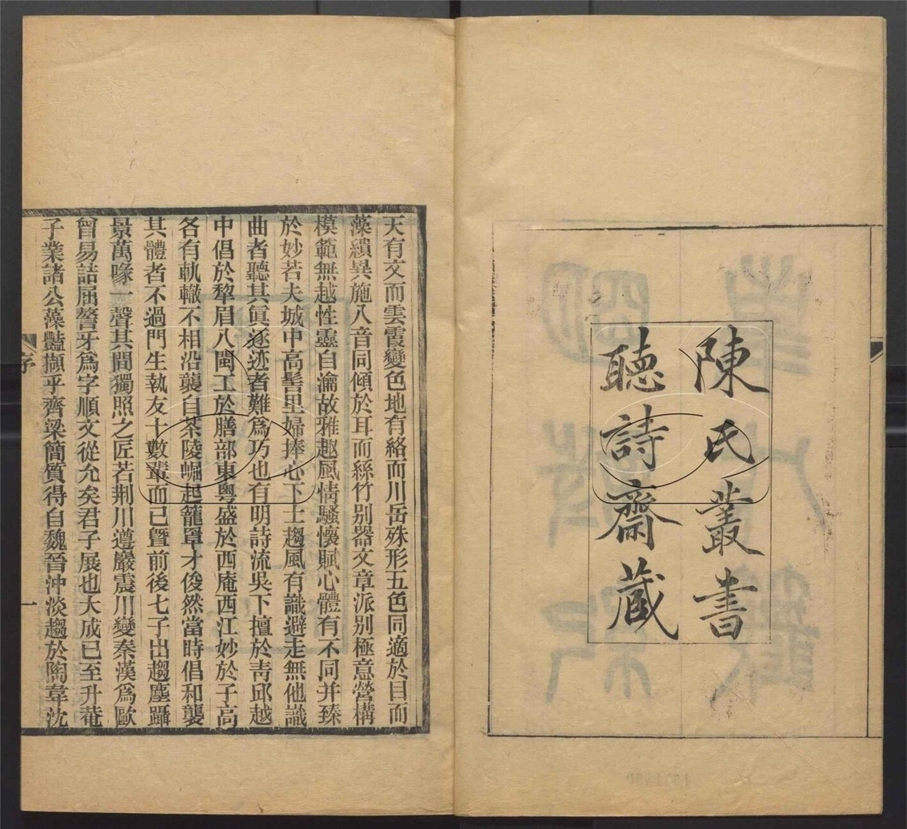 陳氏叢書
聽詩齋藏
天有文而雲霞變色地有絡而川岳殊形五色同適於目而
藻繢異施八音同傾於耳而絲竹别器文章派别極意營構
模範無越性靈自瀹故雅趣風情騷懷賦心體有不同并臻
於妙若夫城中高髻里婦捧心下士趨風有識避走無他識
曲者聽其眞逐迹者難爲巧也有明詩流吳下擅於靑邱越
中倡於犂眉八閩工於膳部東粵盛於西庵西江妙於子高
各有軌轍不相沿襲自茶陵崛起籠罩才俊然當時倡和襲
其體者不過門生執友十數輩而已曁前後七子出趨塵躡
景萬喙一聲其間獨照之匠若荆川遵巖震川變秦漢爲歐
曾易詰屈聱牙爲字順文從允矣君子展也大成已至升菴
子業諸公藻豔擷乎齊梁簡質得自魏晉沖淡趨於陶韋沈
序
一